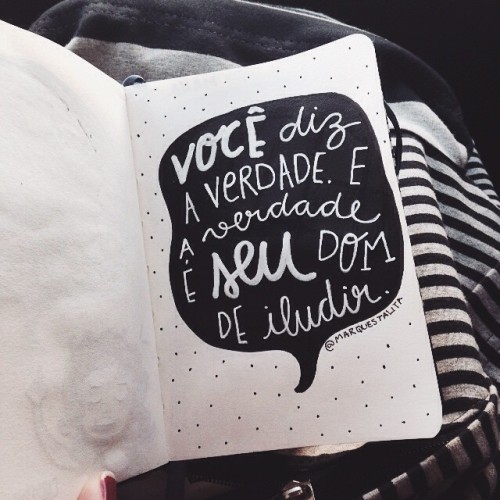 VOCÊ diz
A VERDADE. E
A verdade
É seu DOM
DE iludir.
@MARQUESTALITT